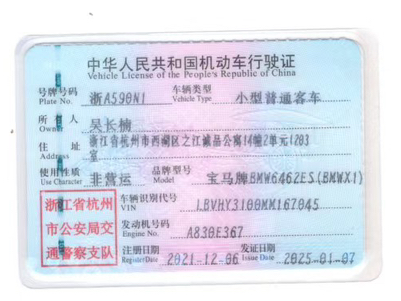 中华人民共和国机动车行驶证
Vehicle License of the People's Republic of China
号牌号码 浙A590N1 车辆类型 小型普通客车
Plate No. Vehicle Type
所有人 吴长楠
Owner
住址 浙江省杭州市西湖区之江诚品公寓14幢2单元1203
Address 室
使用性质 非营运 品牌型号 宝马牌BMW6462ES(BMWX1)
Use Character Model
浙江省杭州
市公安局交
通警察支队
车辆识别代号 LBVHY3100MM167045
VIN
发动机号码 A830E367
Engine No.
注册日期 2021-12-06 发证日期 2025-01-07
Register Date Issue Date